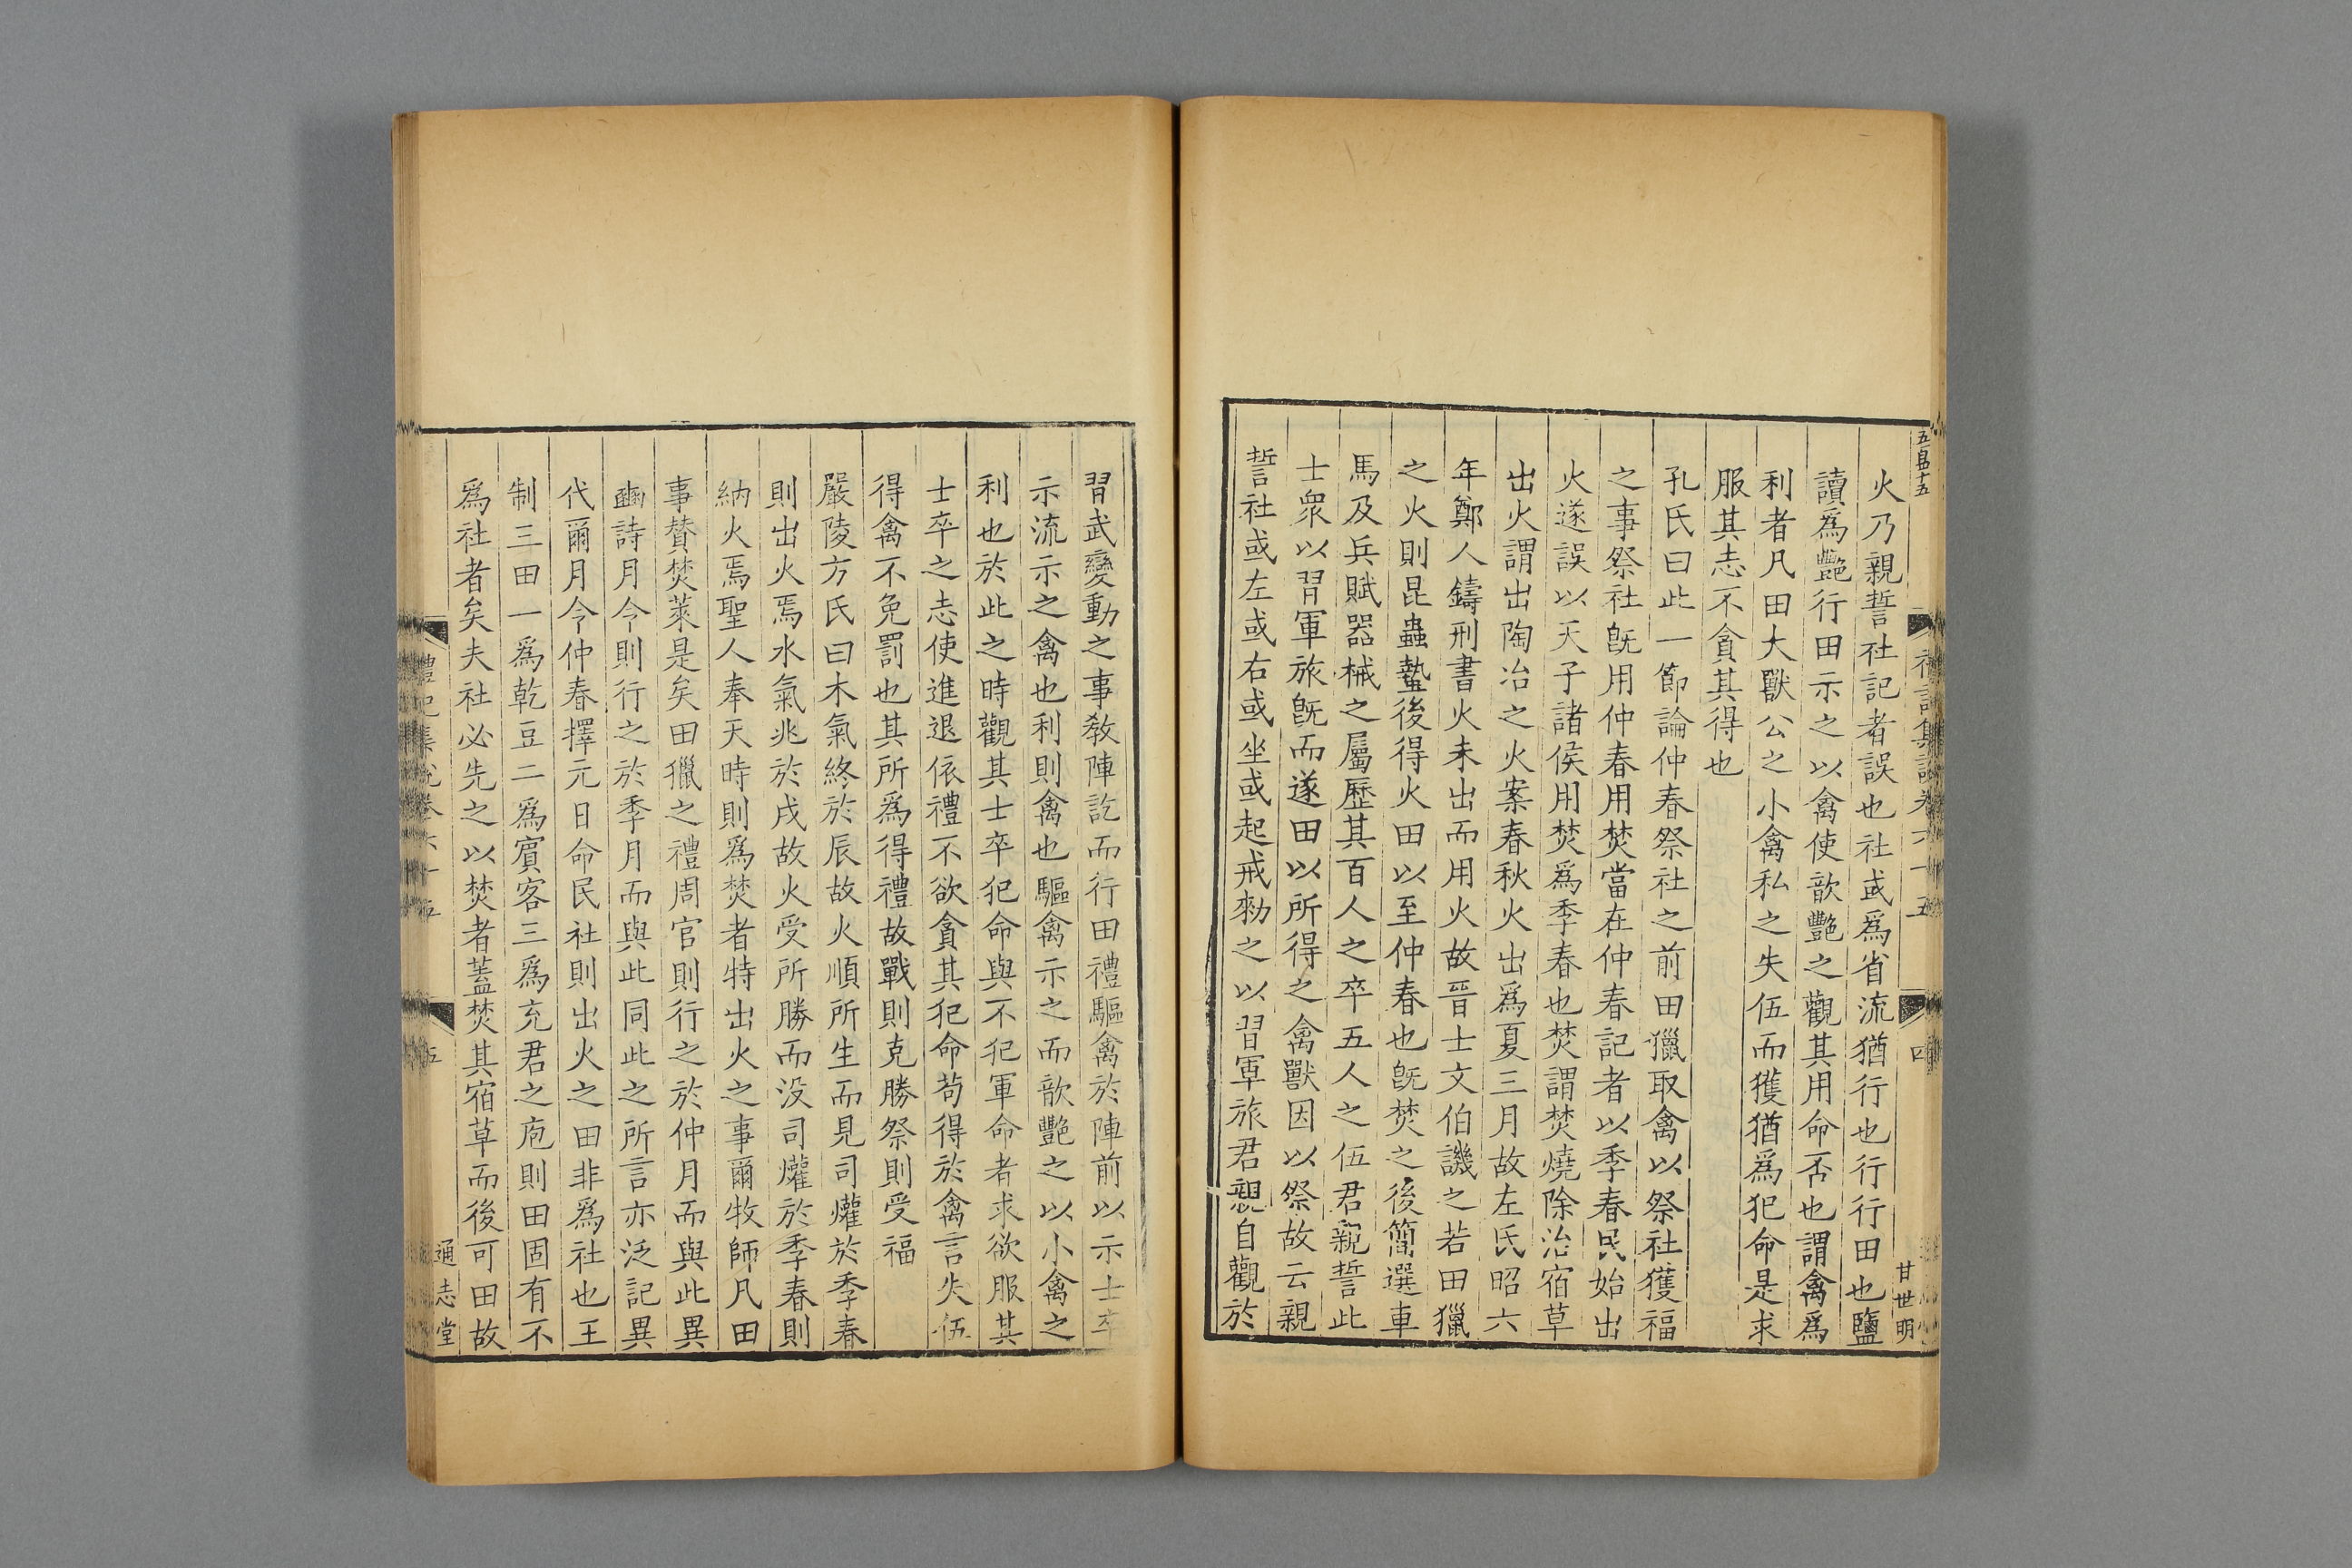 火乃親誓社記者誤也社或爲省流猶行也行行田也鹽
讀爲艷行田示之以禽使歆艷之觀其用命否也謂禽爲
利者凡田大獸公之小禽私之失伍而獲猶爲犯命是求
服其志不貪其得也
孔氏曰此一節論仲春祭社之前田獵取禽以祭社獲福
之事祭社旣用仲春用焚當在仲春記者以季春民始出
火遂誤以天子諸侯用焚爲季春也焚謂焚燒除治宿草
出火謂出陶冶之火案春秋火出爲夏三月故左氏昭六
年鄭人鑄刑書火未出而用火故晉士文伯譏之若田獵
之火則昆蟲蟄後得火田以至仲春也旣焚之後簡選車
馬及兵賦器械之屬歷其百人之卒五人之伍君親誓此
士衆以習軍旅旣而遂田以所得之禽獸因以祭故云親
誓社或左或右或坐或起戒勑之以習軍旅君親自觀於
甘世明
習武變動之事敎陣訖而行田禮驅禽於陣前以示士卒
示流示之禽也利則禽也驅禽示之而歆艷之以小禽之
利也於此之時觀其士卒犯命與不犯軍命者求欲服其
士卒之志使進退依禮不欲貪其犯命苟得於禽言失伍
得禽不免罰也其所爲得禮故戰則克勝祭則受福
嚴陵方氏曰木氣終於辰故火順所生而見司爟於季春
則出火焉水氣兆於戌故火受所勝而没司爟於季春則
納火焉聖人奉天時則爲焚者特出火之事爾牧師凡田
事贊焚萊是矣田獵之禮周官則行之於仲月而與此異
豳詩月令則行之於季月而與此同此之所言亦泛記異
代爾月令仲春擇元日命民社則出火之田非爲社也王
制三田一爲乾豆二爲賓客三爲充君之庖則田固有不
爲社者矣夫社必先之以焚者蓋焚其宿草而後可田故
禮記集說卷六十五
五
通志堂